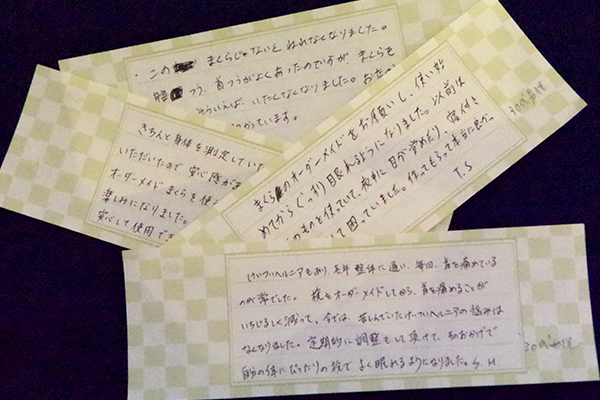 この まくらじゃないと ねれなくなりました。
つう、首つうがよくあったのですが、まくらを
そういえば、いたくなくなりました。おた
っています。
きちんと身体を測定して
いただいたので 安心感が
オーダーメイド まくらを使
楽しみになりました。
安心して使用でき
まくらのオーダーメイドをお願いし、使い始
めてからぐっすり眠れるようになりました。以前は
のものを使っていて、夜中に 目が覚めたり、寝付き
て困っていました。作ってもらって本当に良かっ
T.S
30代男性
けいついヘルニアもあり、長年 整体に通い、毎回、首を痛めている
のが常でした。 枕をオーダーメイドしてから、首を痛めることが
いちじるしく減って、今では 苦しんでいたけいついヘルニアの悩みは
なくなりました。定期的に調整もして頂けて、そのおかげで
自分の体にぴったりの枕で よく眠れるようになりました。S.H
30代女性